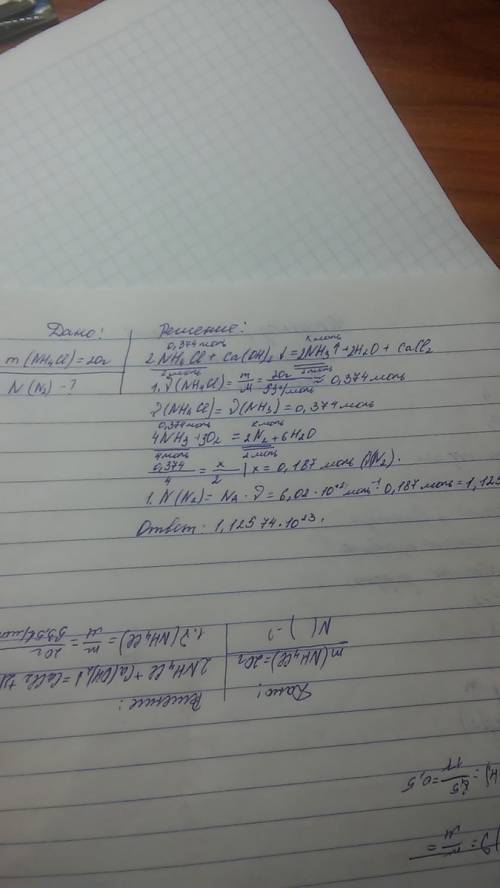 Дано:
m(NH₄Cl)=20г
N(N₂)-?
Решение:
0,374 моль x моль
2NH₄Cl + Ca(OH)₂ = 2NH₃↑+2H₂O + CaCl₂
2 моль 2 моль
1. ν(NH₄Cl)= m/M = 20г/ ≈ 0,374 моль
ν(NH₄Cl)= ν(NH₃)=0,374 моль
0,374 моль x моль
4NH₃+3O₂ = 2N₂+6H₂O
4 моль 2 моль
0,374/4 = x/2 | x = 0,187 моль (N₂).
1. N(N₂)= Nₐ · ν = 6,02·10²³ моль⁻¹·0,187 моль = 1,125
Ответ: 1,12574·10²³.
Дано:
m(NH₄Cl)=20г
N( )-?
Решение:
2NH₄Cl + Ca(OH)₂ = CaCl₂ +2
1. ν(NH₄Cl)= m/M = 20г/53,5г/мол
= 0,5
ν = m/M =